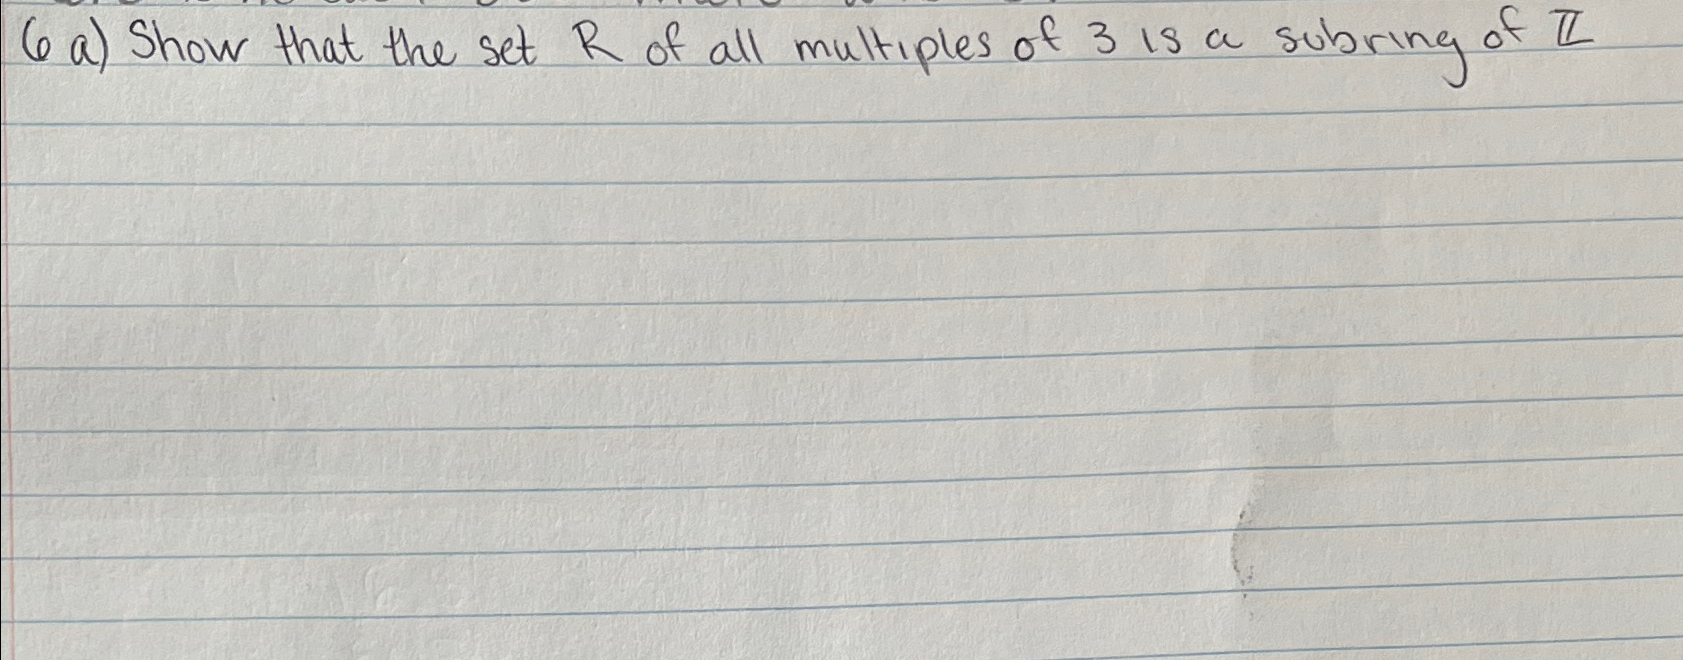 6 a) Show that the set R of all multiples of 3 is a subring of ℤ